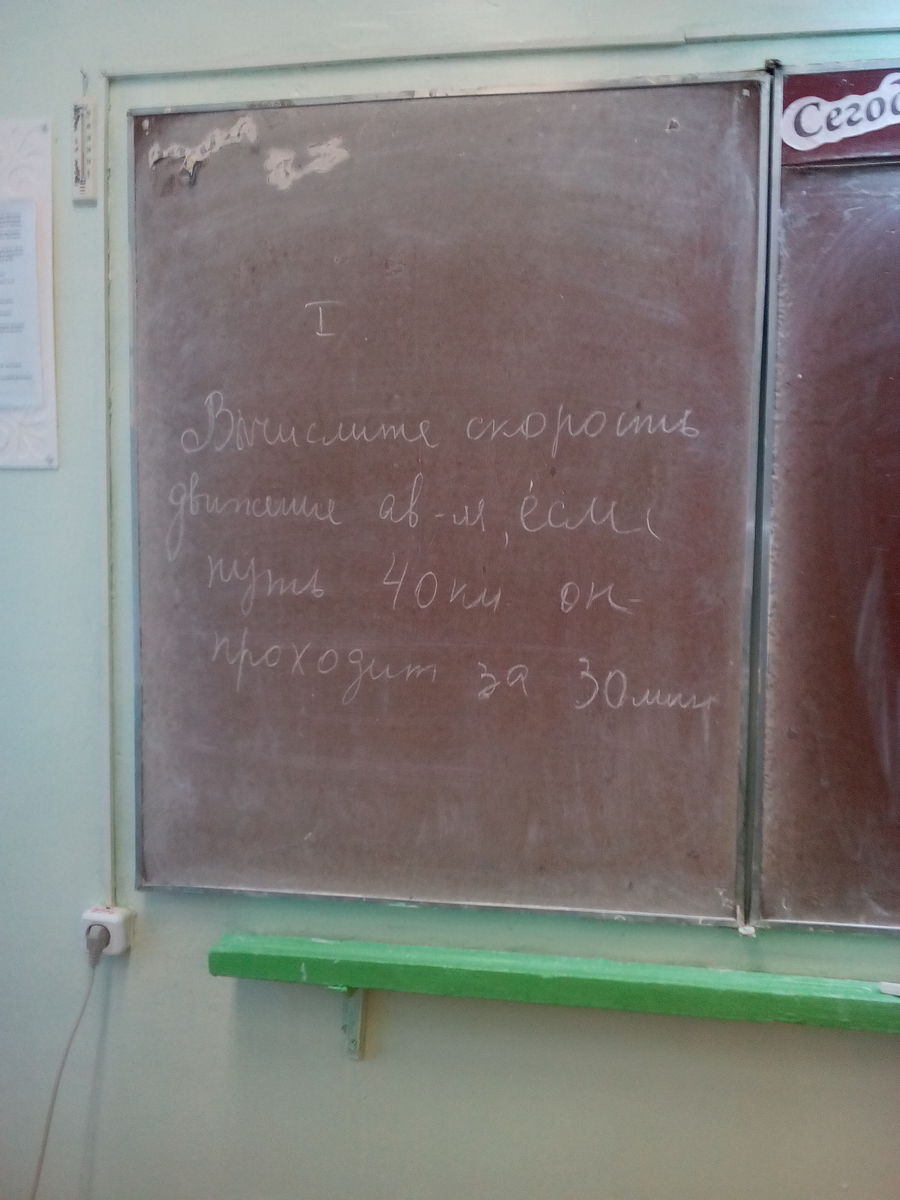 Сегод
I
Вычислите скорость
движение ав-я, если
путь 40 км он
проходит за 30 мин